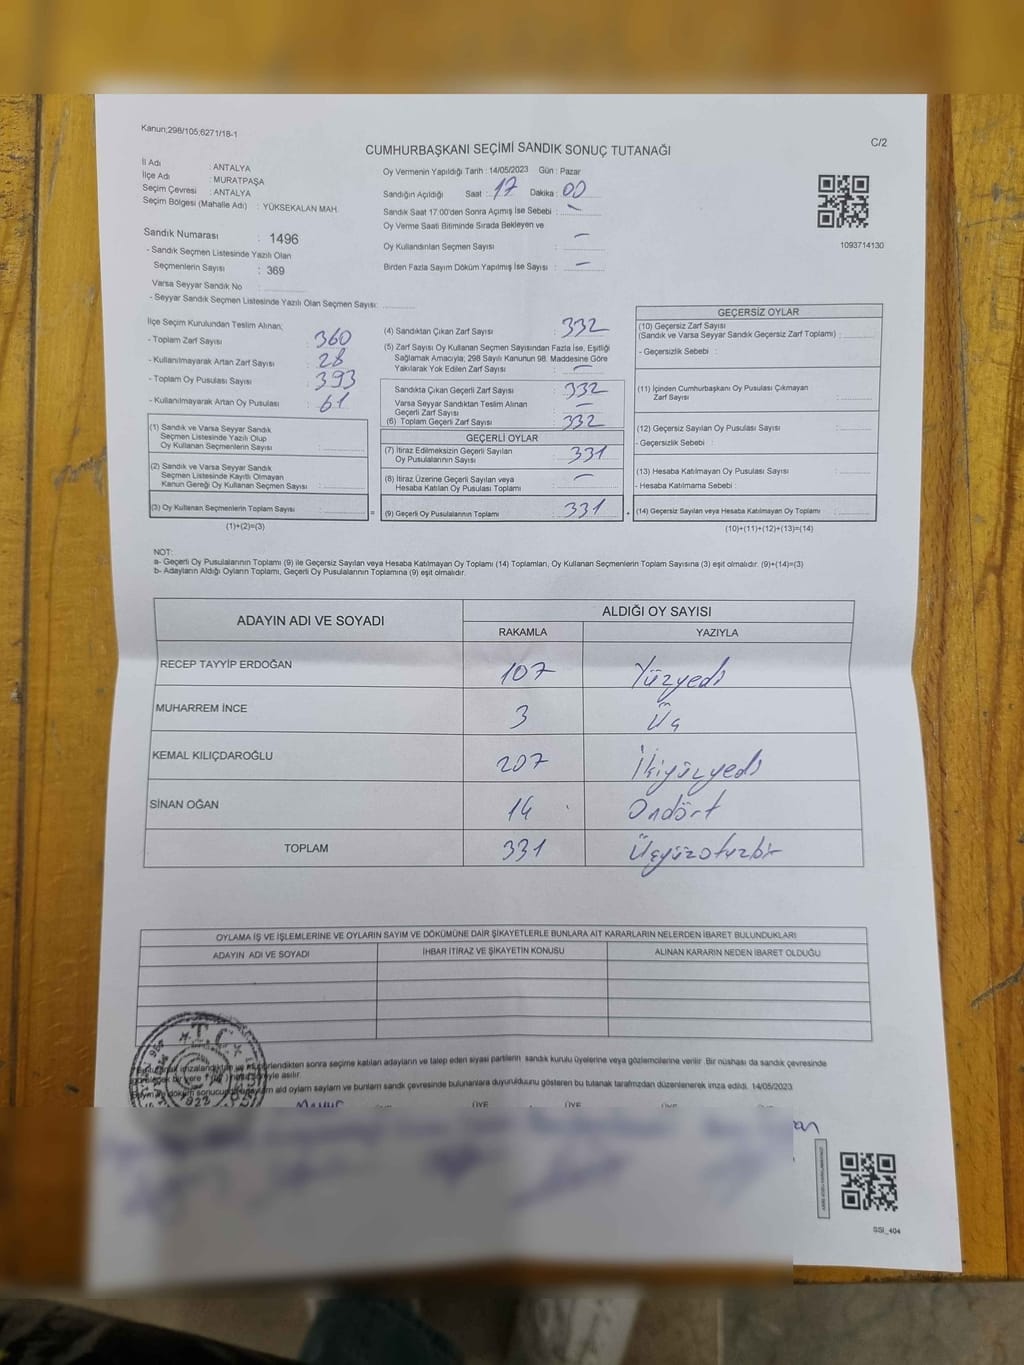 Kanun;298/105;6271/18-1
C/2
CUMHURBAŞKANI SEÇİMİ SANDIK SONUÇ TUTANAĞI
İl Adı : ANTALYA
İlçe Adı : MURATPAŞA
Seçim Çevresi : ANTALYA
Seçim Bölgesi (Mahalle Adı) : YÜKSEKALAN MAH.
Oy Vermenin Yapıldığı Tarih : 14/05/2023 Gün : Pazar
Sandığın Açıldığı Saat : 17 Dakika : 00
Sandık Saat 17:00'den Sonra Açımış İse Sebebi : -
Oy Verme Saati Bitiminde Sırada Bekleyen ve
Oy Kullandırılan Seçmen Sayısı : -
Birden Fazla Sayım Döküm Yapılmış İse Sayısı : -
1093714130
Sandık Numarası : 1496
- Sandık Seçmen Listesinde Yazılı Olan
Seçmenlerin Sayısı : 369
Varsa Seyyar Sandık No
- Seyyar Sandık Seçmen Listesinde Yazılı Olan Seçmen Sayısı:
İlçe Seçim Kurulundan Teslim Alınan;
- Toplam Zarf Sayısı : 360
- Kullanılmayarak Artan Zarf Sayısı : 28
- Toplam Oy Pusulası Sayısı : 393
- Kullanılmayarak Artan Oy Pusulası : 61
(1) Sandık ve Varsa Seyyar Sandık
Seçmen Listesinde Yazılı Olup
Oy Kullanan Seçmenlerin Sayısı :
(2) Sandık ve Varsa Seyyar Sandık
Seçmen Listesinde Kayıtlı Olmayan
Kanun Gereği Oy Kullanan Seçmen Sayısı :
(3) Oy Kullanan Seçmenlerin Toplam Sayısı :
(1)+(2)=(3)
(4) Sandıktan Çıkan Zarf Sayısı : 332
(5) Zarf Sayısı Oy Kullanan Seçmen Sayısından Fazla İse, Eşitliği
Sağlamak Amacıyla; 298 Sayılı Kanunun 98. Maddesine Göre
Yakılarak Yok Edilen Zarf Sayısı : -
Sandıkta Çıkan Geçerli Zarf Sayısı : 332
Varsa Seyyar Sandıktan Teslim Alınan
Geçerli Zarf Sayısı : -
(6) Toplam Geçerli Zarf Sayısı : 332
GEÇERLİ OYLAR
(7) İtiraz Edilmeksizin Geçerli Sayılan
Oy Pusulalarının Sayısı : 331
(8) İtiraz Üzerine Geçerli Sayılan veya
Hesaba Katılan Oy Pusulası Toplamı : -
= (9) Geçerli Oy Pusulalarının Toplamı : 331 +
GEÇERSİZ OYLAR
(10) Geçersiz Zarf Sayısı
(Sandık ve Varsa Seyyar Sandık Geçersiz Zarf Toplamı) :
- Geçersizlik Sebebi :
(11) İçinden Cumhurbaşkanı Oy Pusulası Çıkmayan
Zarf Sayısı :
(12) Geçersiz Sayılan Oy Pusulası Sayısı :
- Geçersizlik Sebebi :
(13) Hesaba Katılmayan Oy Pusulası Sayısı :
- Hesaba Katılmama Sebebi :
(14) Geçersiz Sayılan veya Hesaba Katılmayan Oy Toplamı :
(10)+(11)+(12)+(13)=(14)
NOT:
a- Geçerli Oy Pusulalarının Toplamı (9) ile Geçersiz Sayılan veya Hesaba Katılmayan Oy Toplamı (14) Toplamları, Oy Kullanan Seçmenlerin Toplam Sayısına (3) eşit olmalıdır. (9)+(14)=(3)
b- Adayların Aldığı Oyların Toplamı, Geçerli Oy Pusulalarının Toplamına (9) eşit olmalıdır.
ADAYIN ADI VE SOYADI ALDIĞI OY SAYISI
RAKAMLA YAZIYLA
RECEP TAYYİP ERDOĞAN 107 Yüzyedi
MUHARREM İNCE 3 Üç
KEMAL KILIÇDAROĞLU 207 İkiyüzyedi
SİNAN OĞAN 14 Ondört
TOPLAM 331 Üçyüzotuzbir
OYLAMA İŞ VE İŞLEMLERİNE VE OYLARIN SAYIM VE DÖKÜMÜNE DAİR ŞİKAYETLERLE BUNLARA AİT KARARLARIN NELERDEN İBARET BULUNDUKLARI
ADAYIN ADI VE SOYADI İHBAR İTİRAZ VE ŞİKAYETİN KONUSU ALINAN KARARIN NEDEN İBARET OLDUĞU
T.C.
imzalandıktan ve mühürlendikten sonra seçime katılan adayların ve talep eden siyasi partilerin sandık kurulu üyelerine veya gözlemcilerine verilir. Bir nüshası da sandık çevresinde
bir yere asılır.
döküm sonucunda oyların sayısını ve bunların sandık çevresinde bulunanlara duyurulduğunu gösteren bu tutanak tarafımızdan düzenlenerek imza edildi. 14/05/2023
ÜYE ÜYE ÜYE ÜYE
SSI_404